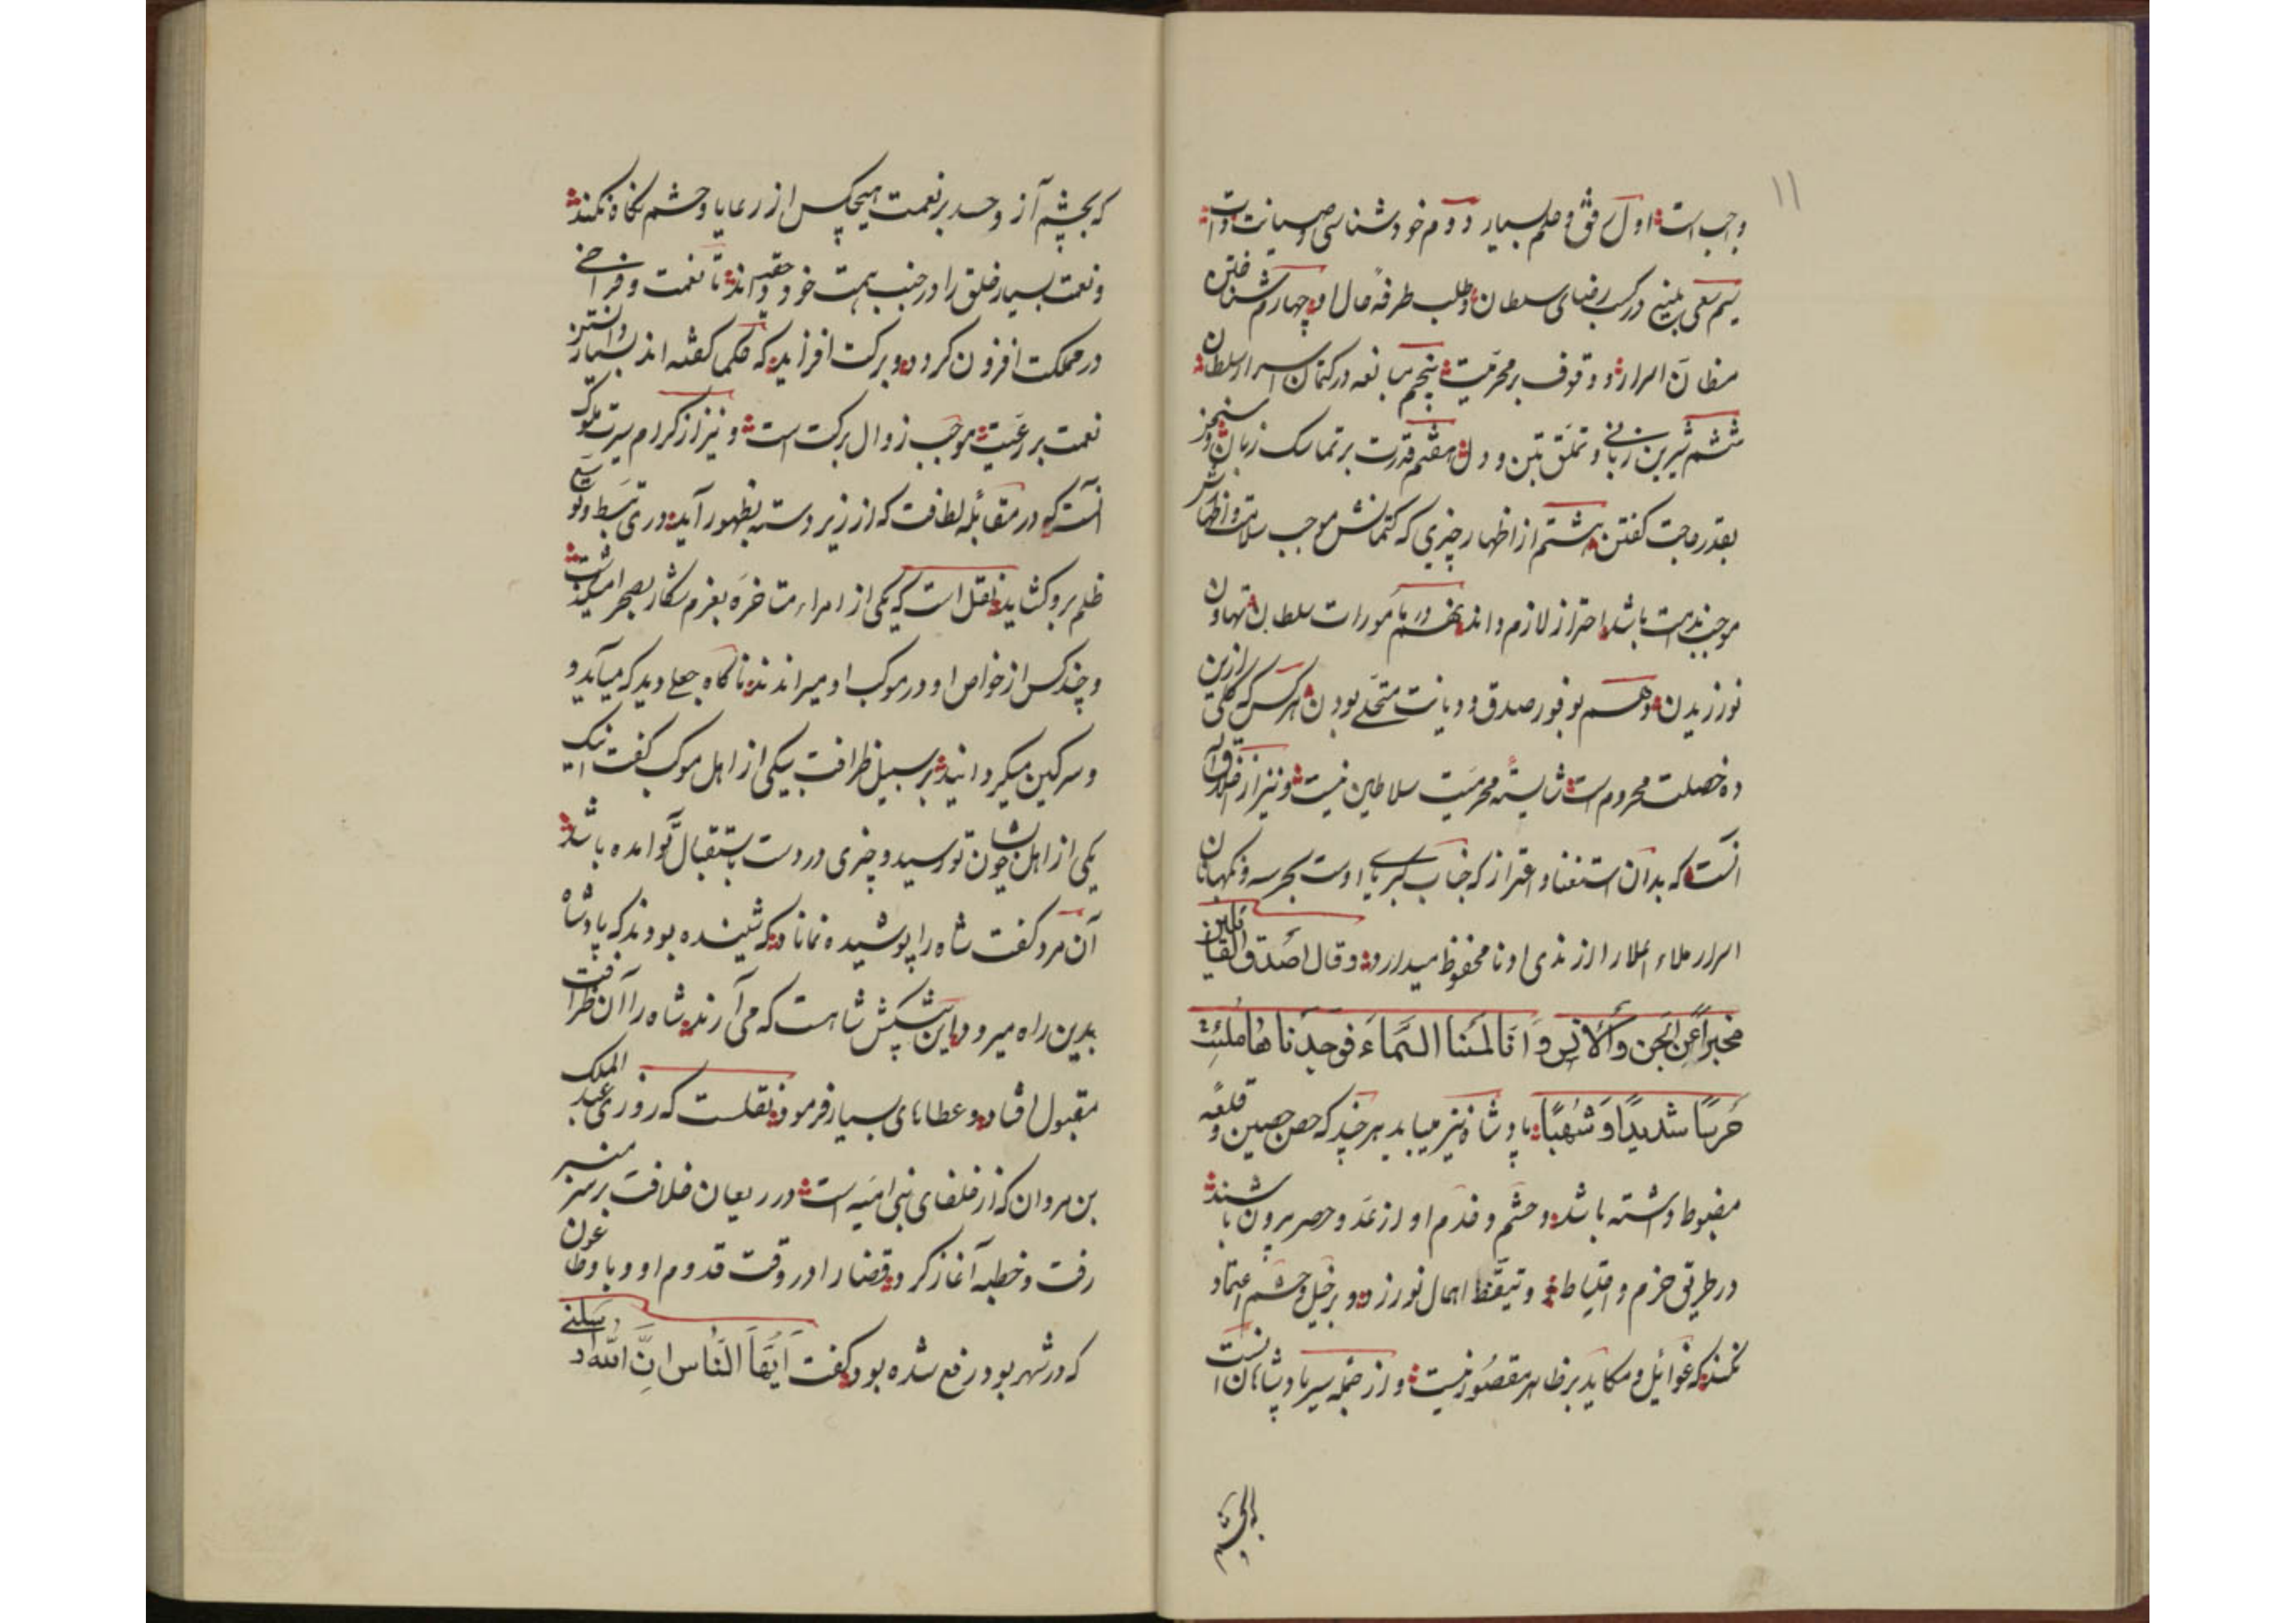 ۱۱
واجب است اول رفق و حلم بسیار دوم خودشناسی و صیانت ذات
سیم سعی بلیغ در کسب رضای سلطان و طلب طرفه حال او چهارم شناختن
مظان اسرار و وقوف بر محرمیت پنجم مبالغه در کتمان اسرار سلطان
ششم شیرین زبانی و تملق تن و دل هفتم قدرت بر تماسک زبان و سخن
بقدر حاجت کفتن هشتم از اظهار چیزی که کتمانش موجب سلامت و اظهارش
موجب ندامت باشد احتراز لازم داند نهم در مأمورات سلطان تهاون
نورزیدن دهم بوفور صدق و دیانت متحلی بودن هر کس که کلی ازین
ده خصلت محروم است شایسته محرمیت سلاطین نیست و نیز از اخلاق
آنست که بدان استغنا و اعتزاز که جناب کبریای اوست بحرسه و نکهبانان
اسرار ملاء اعلا را از نا محفوظ میدارد و قال اصدق القایلین
مخبراً عن الجن والانس وانا لمسنا السماء فوجدناها ملئت
حرسًا شدیدًا وشهبًا پادشاه نیز میباید هر چند که حصن حصین و قلعه
مضبوط داشته باشد و حشم و خدم او از عد و حصر بیرون باشند
در طریق حزم و احتیاط و تیقظ اهمال نورزد و بر خیل و حشم اعتماد
نکند که غوائل و مکاید بر ظاهر مقصور نیست و از جمله سیر پادشاهان آنست
که بچشم آز و حسد بر نعمت هیچکس از رعایا و حشم نکاه نکند
و نعمت بسیار خلق را در جنب همت خود حقیر داند تا نعمت و فراخی
در مملکت افزون کردد و برکت افزاید که حکما کفته اند بسیار دانستن
نعمت بر رعیت موجب زوال برکت است و نیز از کرام سیرت ملوک
آنست که در مقابله لطافت که از زیردسته بظهور آید دری تبسط و توسیع
ظلم برو کشاید نقل است که یکی از امراء متاخره بعزم شکار بصحرا میکذشت
و چند کس از خواص او در موکب او میراندند ناکاه جعلی دید که میآید و
و سرکین میکردانید بر سبیل ظرافت بیکی از اهل موکب کفت اینک
یکی از اهل شما چون تو رسید و چیزی در دست باستقبال تو آمده باشد
آن مرد کفت شاه را پوشیده نماند که شنیده بودند که پادشاه
بدین راه میرود این پیشکش شاهست که می آرند شاه را آن ظرافت
مقبول افتاد و عطاهای بسیار فرمود نقلست که روزی عبد الملک
بن مروان که از خلفای بنی امیه است در ریعان خلافت بر سر منبر
رفت و خطبه آغاز کرد قضا را در وقت قدوم او وبا و طاعون
که در شهر بود رفع شده بود کفت ایها الناس ان الله